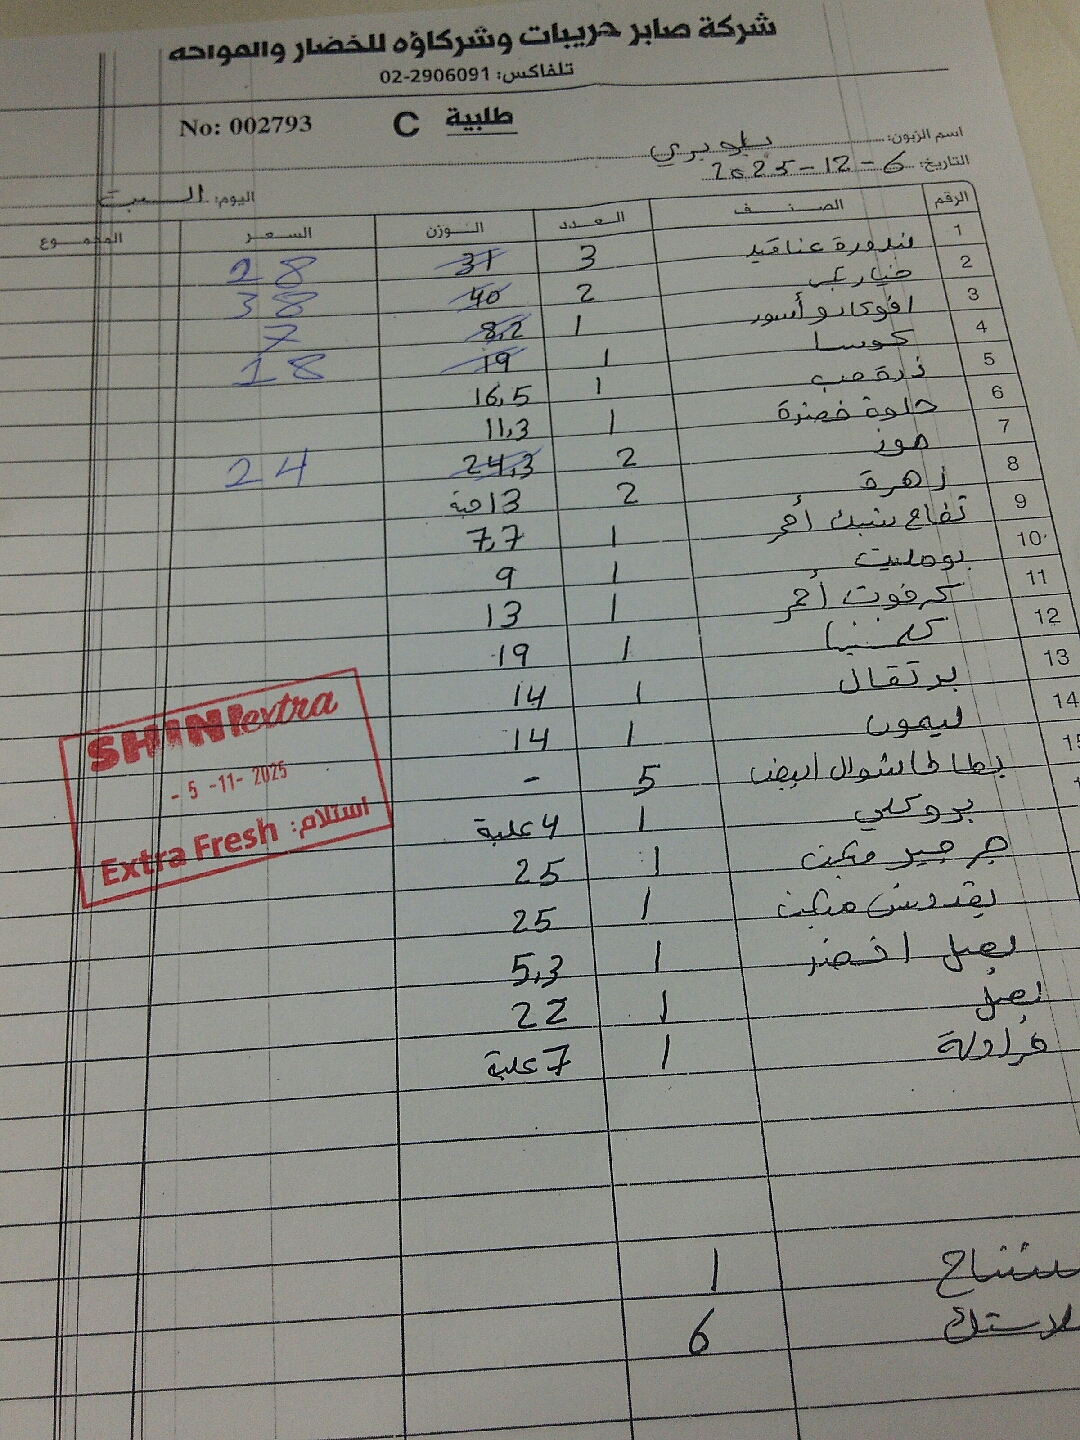 شركة صابر حريبات وشركاؤه للخضار والفواكه
تلفاكس: 02-2906091
No: 002793 C طلبية
اسم الزبون: بلو بري
التاريخ: 6-12-2025
اليوم: السبت
الرقم الصنف العدد الوزن السعر المجموع
1 بندورة عناقيد 3 31 28
2 خيار 2 40 38
3 افوكادو أسود 1 8,2 7
4 كوسا 1 19 18
5 ذرة حب 1 16,5
6 حلوة خضرة 1 11,3
7 موز 2 24,3 24
8 زهرة 2 13 حبة
9 تفاح أحمر 1 7,7
10 بومليت 1 9
11 كرفوت أحمر 1 13
12 كلمنتينا 1 19
13 برتقال 1 14
14 ليمون 1 14
15 بطاطا شوال ابيض 5 -
بروكلي 1 4 علبة
جرجير 1 25
بقدونس 1 25
بصل اخضر 1 5,3
بصل 1 22
فراولة 1 7 علبة
مشتاح 1
بلاستك 6
SHINI extra
- 5 -11- 2025
Extra Fresh استلام: